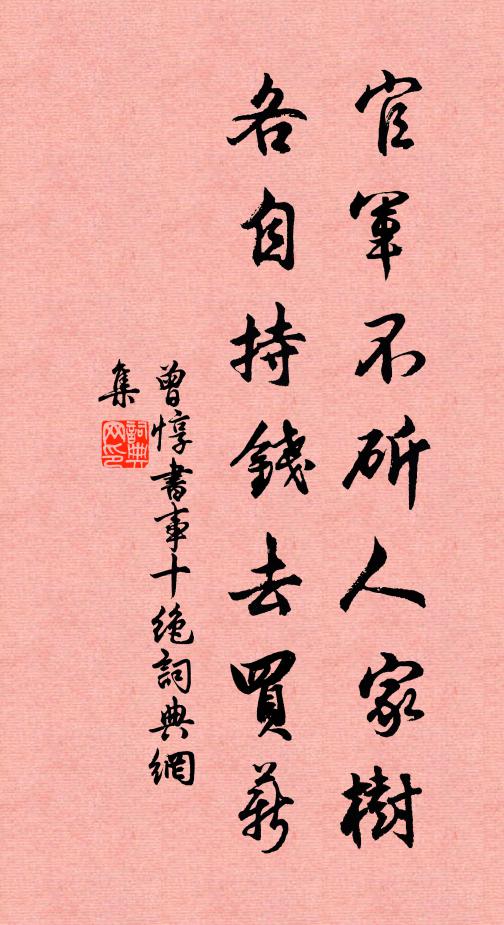 官軍不斫人家樹
各自持錢去買薪
曾惇書事十絶詞典網
集
詞典
网印